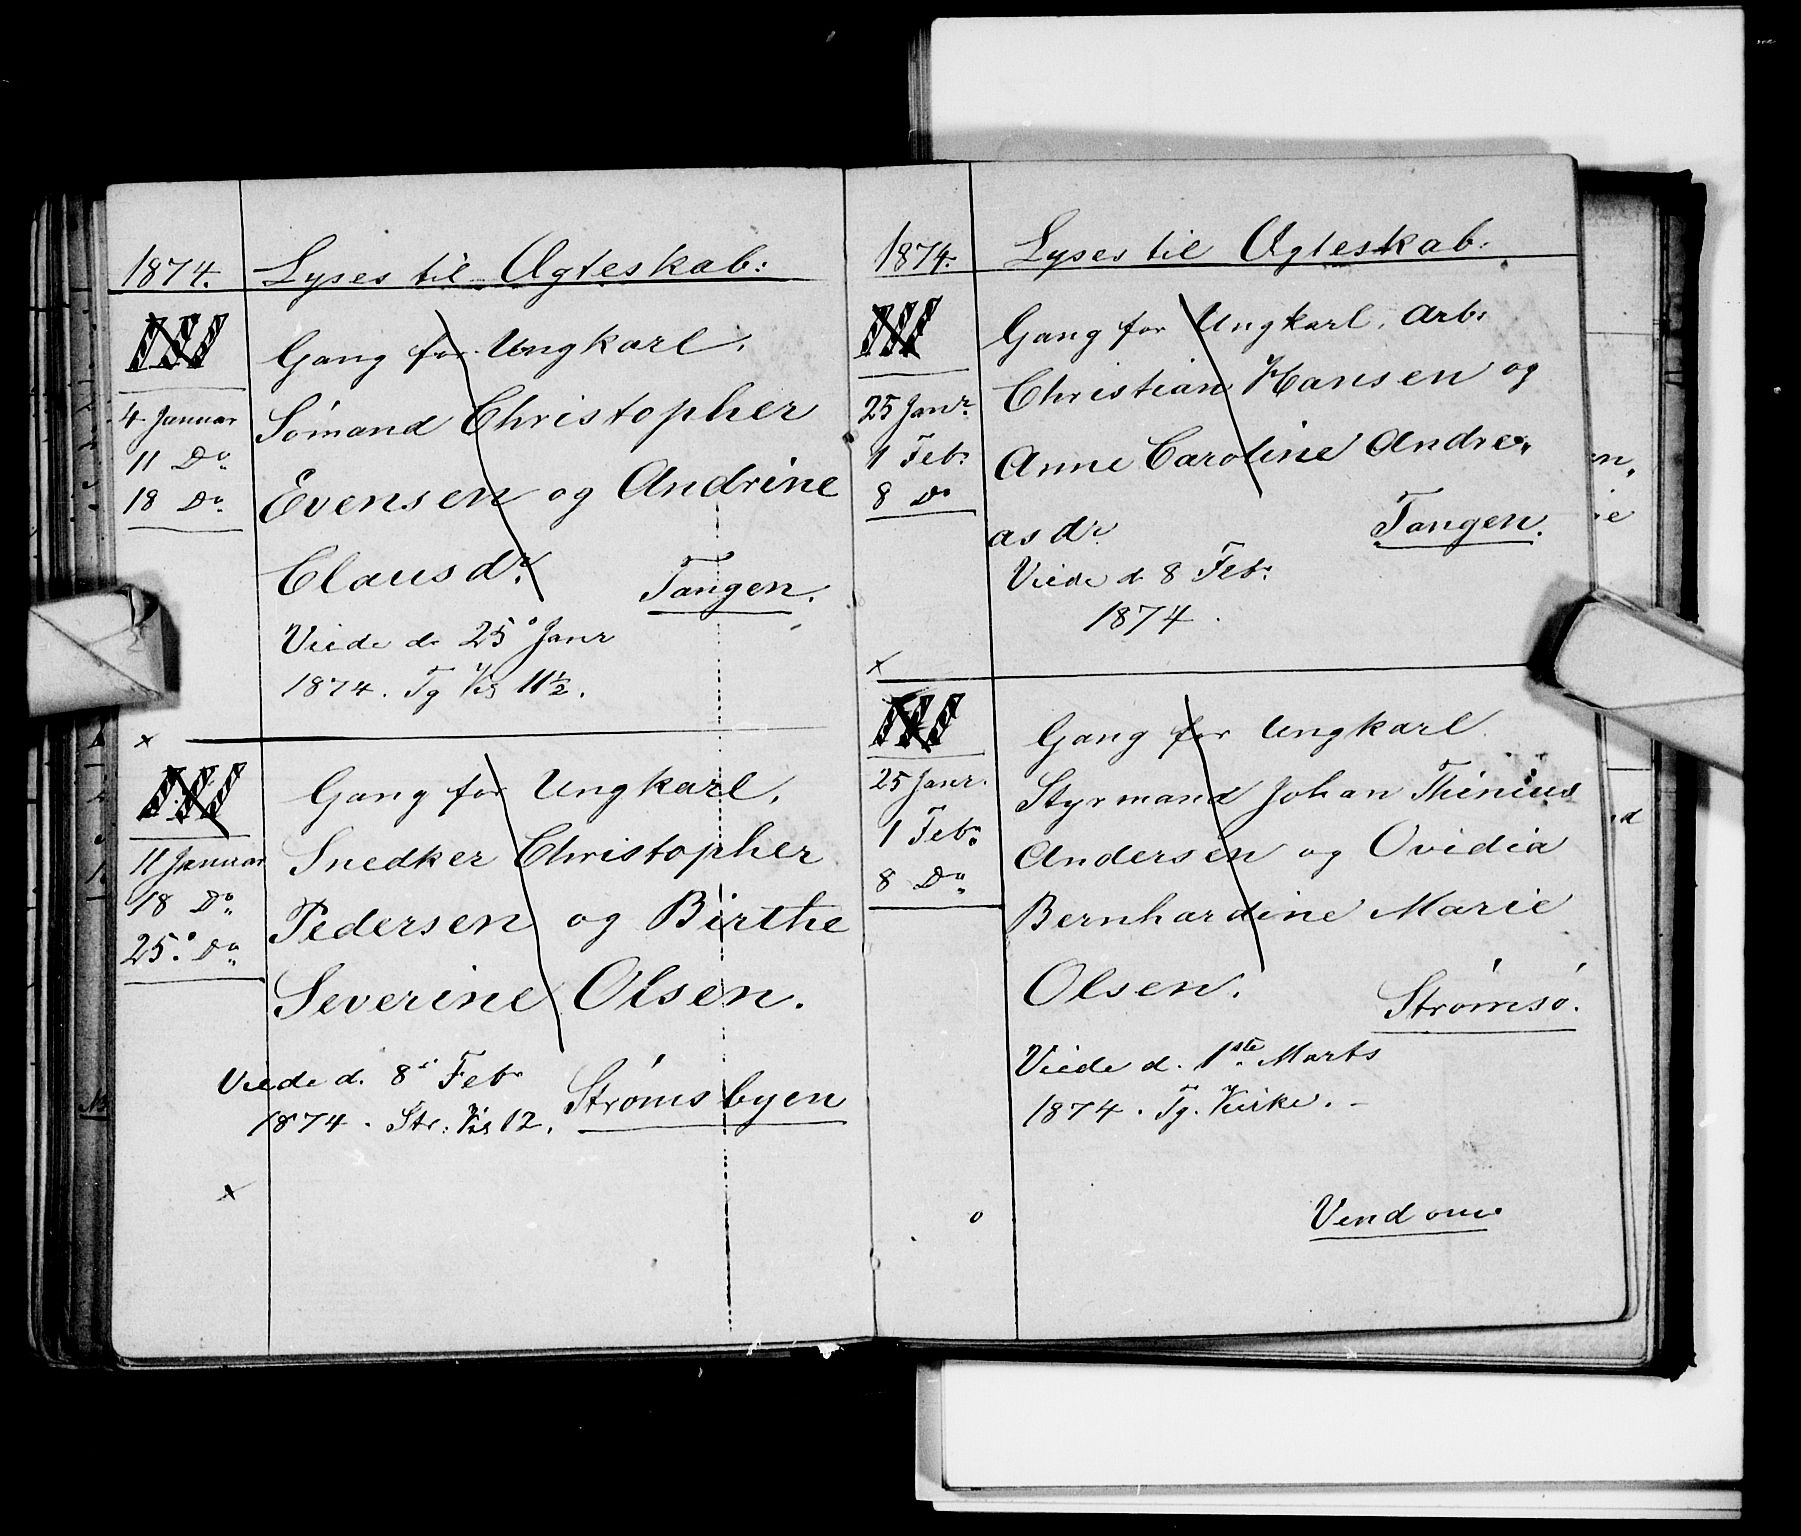 1874. Lyses til Ægteskab:
III Gang for Ungkarl.
4 Januar Sømand Christopher
11 Do
18 Do Evensen og Andrine
Clausdr. Tangen.
Viede d. 25 Janr
1874. Tg Kg 11½.
x
III Gang for Ungkarl.
11 Januar Snedker Christopher
18 Do Pedersen og Birthe
25. Do Severine Olsen.
Viede d. 8 Febr
1874. Str: Kg 12. Strømsbyen
x
1874. Lyses til Ægteskab:
III Gang for Ungkarl. Arb:
25 Janr. Christian Hansen og
1 Feb. Anne Caroline Andre„
8 Do
asdr. Tangen.
Viede d. 8 Feb.
1874.
x
III Gang for Ungkarl.
25 Janr. Styrmand Johan Thinius
1 Feb. Andersen og Ovidia
8 Do Bernhardine Marie
Olsen. Strømsø.
Viede d. 1ste Marts
1874. Tg. Kirke. –
o Vend om